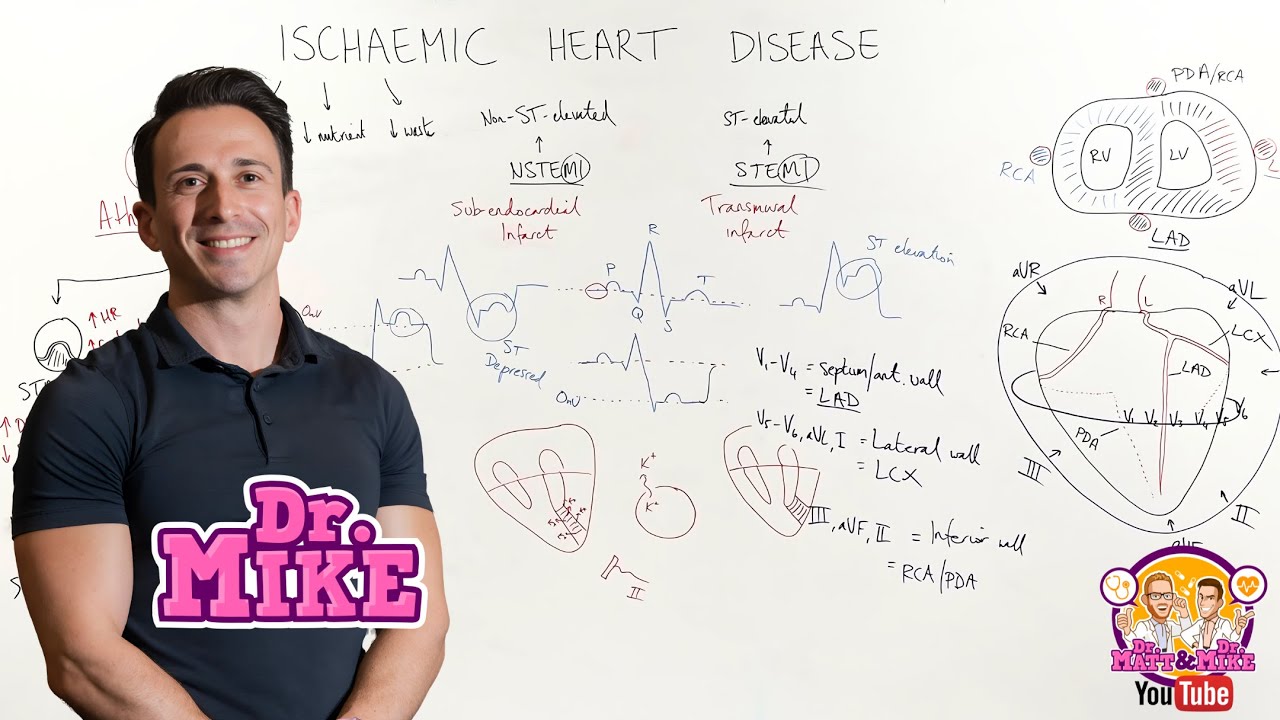 ISCHAEMIC HEART DISEASE
↓ nutrient ↓ waste
Non-ST-elevated
NSTEMI
Sub-endocardial
Infarct
STEMI
Transmural
infarct
ST elevation
P
R
Q
S
T
ST
Depressed
0mV
0mV
↑HR
V1-V4 = septum/ant. wall
= LAD
V5-V6, aVL, I = Lateral wall
= LCX
III, aVF, II = Inferior wall
= RCA/PDA
K+
K+
II
PDA/RCA
RV
LV
RCA
LAD
aVR
aVL
R
L
RCA
LCX
LAD
V1 V2 V3 V4 V5 V6
PDA
III
II
Dr.
MIKE
Dr. Dr.
MATT & MIKE
YouTube